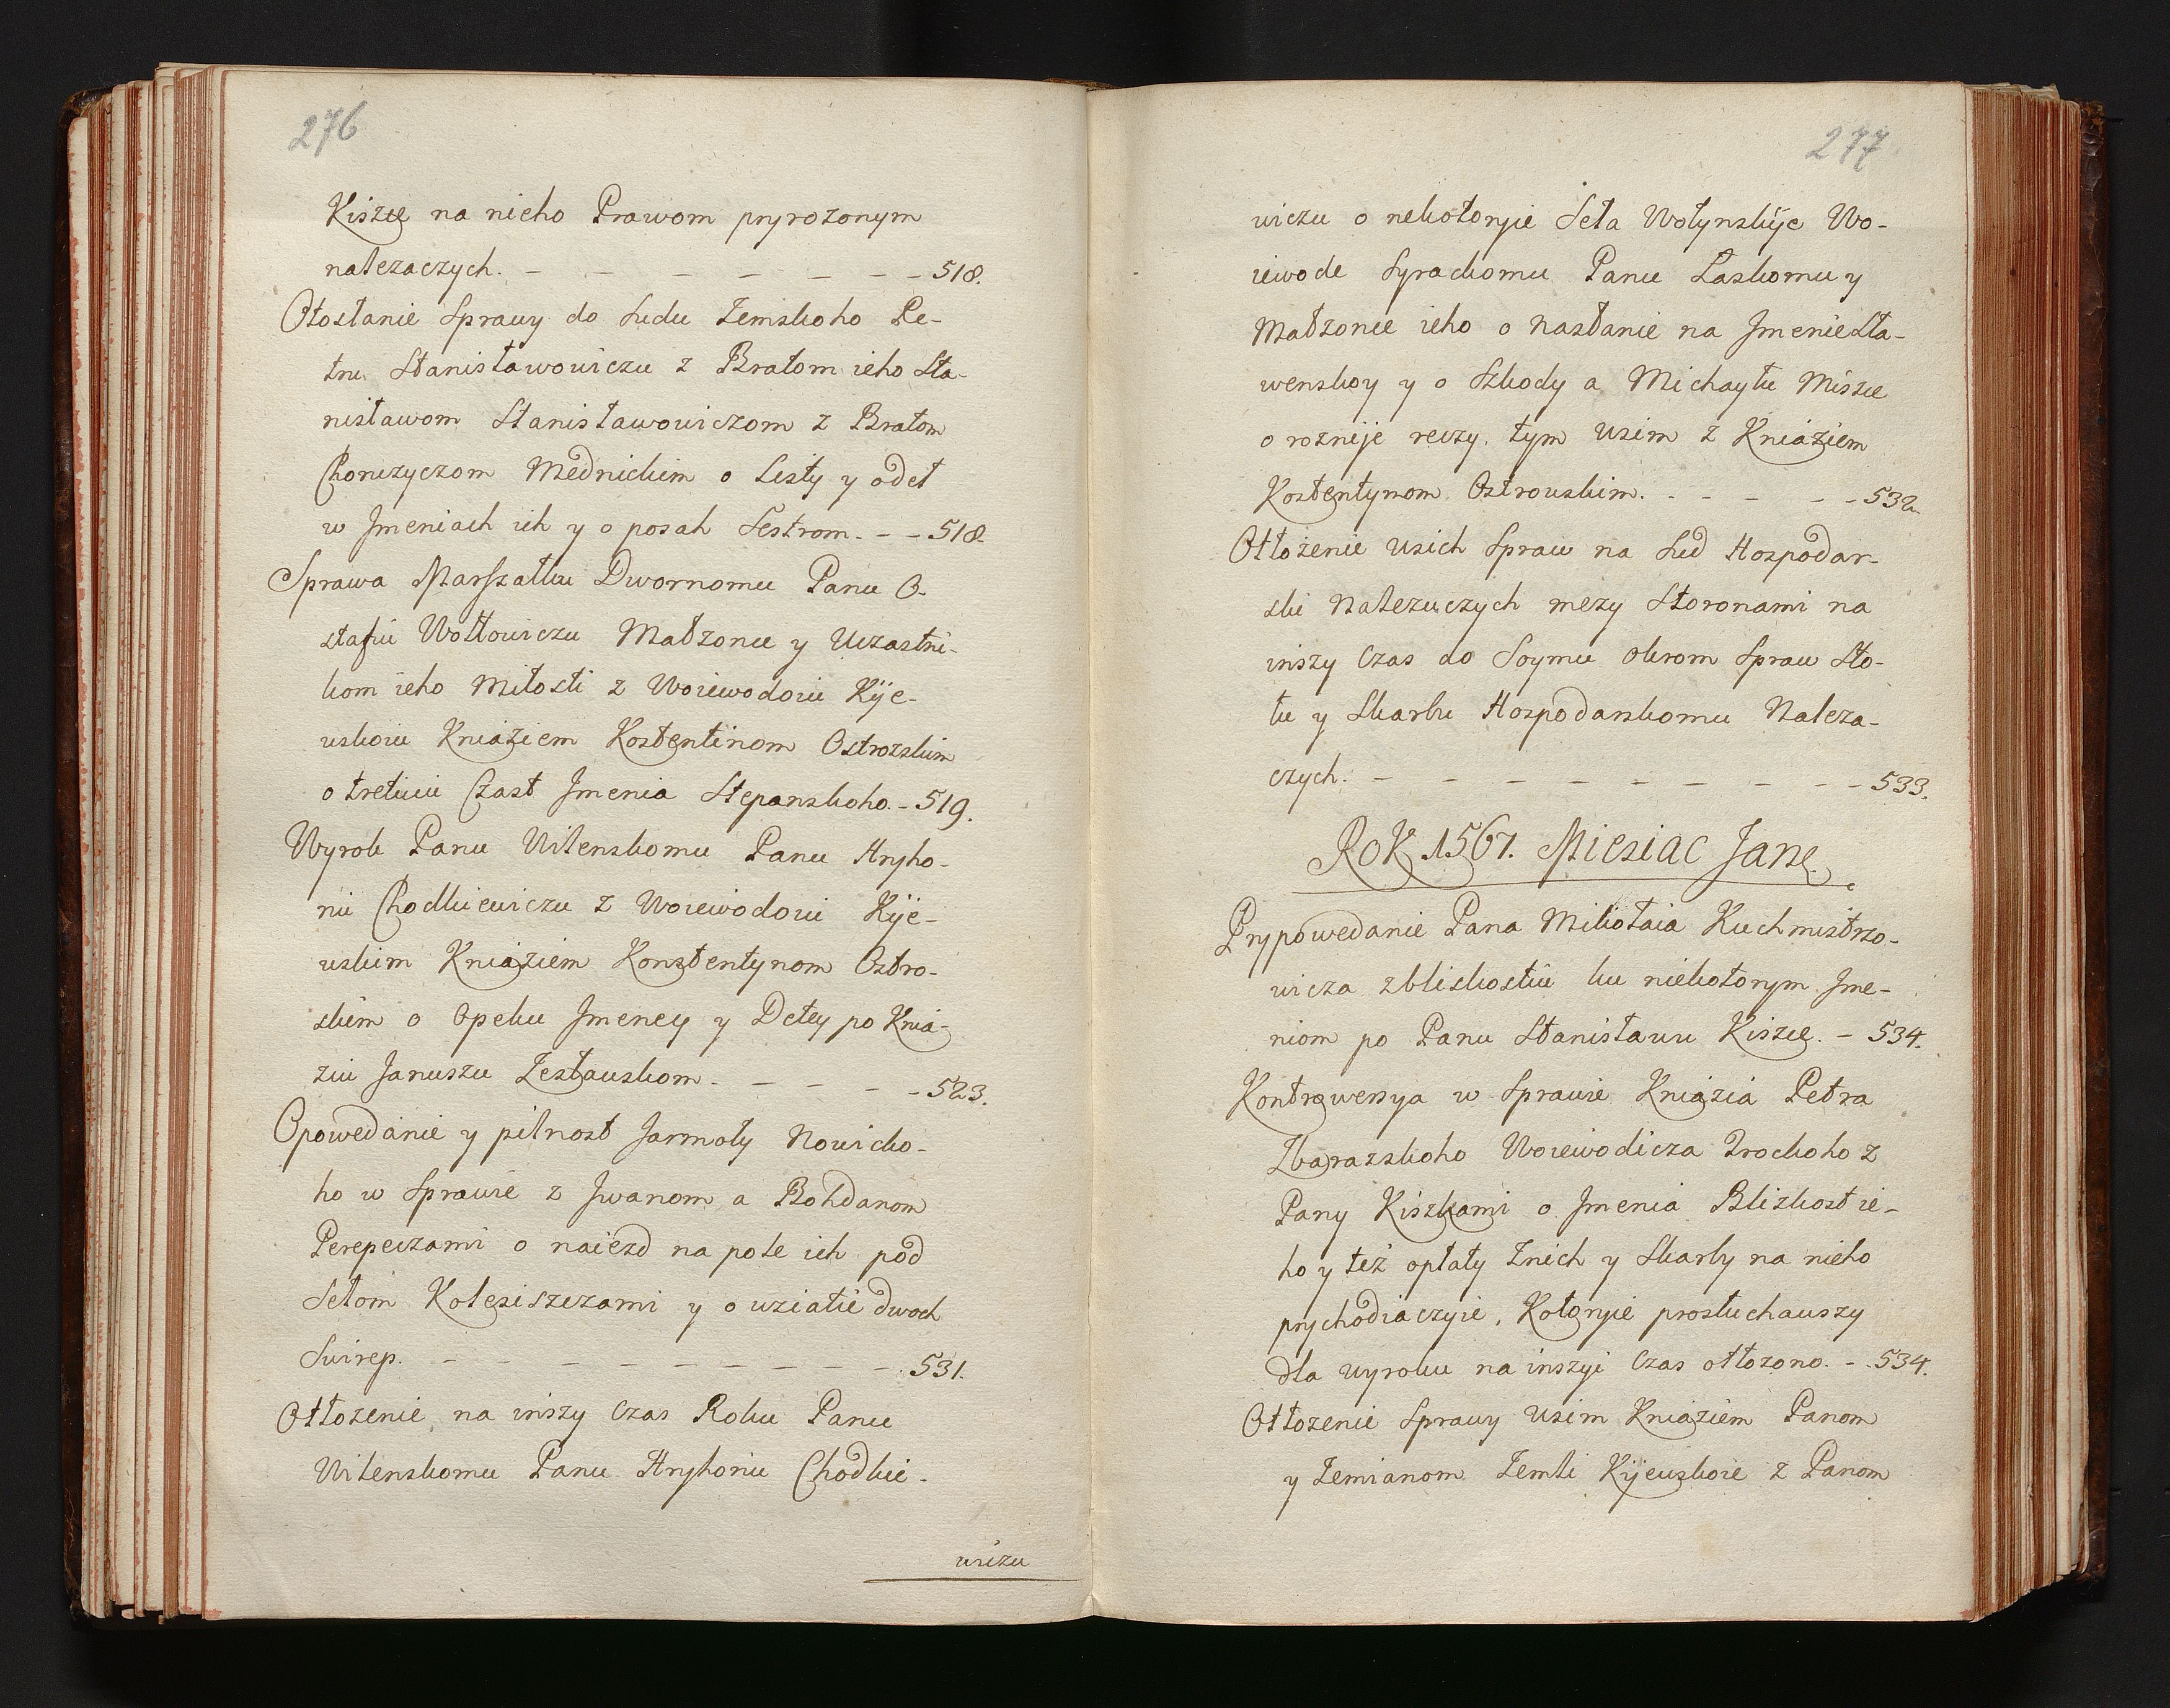 276
Kiszcę na nieho Prawom pryrożonym
należaczych. - - - - - - - 518.
Otosłanie Sprawy do Sudu Zemskoho Pe-
tru Stanisławowiczu z Bratom ieho Sta-
nisławom Stanisławowiczom z Bratom
Chonczyczom Mednickim o Listy y odeł
w Jmeniach ich y o posah Sestrom. - - 518.
Sprawa Marszałku Dwornomu Panu O-
stafiu Wołłowiczu Małżonce y Uczastni-
kom ieho Miłosti z Woiewodoiu Kije-
wskoiu Kniaziem Kostentinom Ostrozskim
o tretiuiu Czast Jmenia Stepanskoho. - 519.
Wyrok Panu Wilenskomu Panu Hryho-
riu Chodkiewiczu z Woiewodoiu Kije-
wskim Kniaziem Konstentynom Ostro-
skim o Opeku Jmeney y Detey po Knia-
ziu Januszu Zesławskom. - - - - 523.
Opowedanie y pilnost Jarmoły Nowicko-
ho w Sprawie z Jwanom a Bohdanom
Perepeczami o naiezd na pole ich pod
Sełom Kolesiszczami y o uziatie dwoch
Swirep. - - - - - - - - - 531.
Otłożenie na inszy Czas Roku Panu
Wilenskomu Panu Hryhoriu Chodkie-
wiczu
277
wiczu o nekotoryie Seła Wołynskije Wo-
iewode Syrackomu Panu Laskomu y
Małzonce ieho o nasłanie na JmenieSta-
wenskoy y o Szkody a Michayłu Miszce
o roznije reczy. tym usim z Kniaziem
Kostentynom Ostrowskim. - - - - - 532.
Otłożenie usich Spraw na Sud Hospodar-
ski Należuczych mezy Storonami na
inszy Czas do Soymu okrom Spraw Sto-
łu y Skarbu Hospodarskomu Należa-
czych. - - - - - - - - - 533.
Rok 1567. Miesiac Janę.
Prypowedanie Pana Mikołaia Kuchmistrzo-
wicza z bliskostiu ku niekotorym Jme-
niom po Panu Stanisławu Kiszcę. - 534.
Kontrowersya w Sprawie Kniazia Petra
Zbarazskoho Woiewodicza Trockoho z
Pany Kiszkami o Jmenia Blizkost ie-
ho y też opłaty Znich y Skarby na nieho
prychodiaczyie, Kotoryie prosłuchauszy
dla wyroku na inszyi Czas otłozono. - - 534.
Otłozenie Sprawy usim Kniaziem Panom
y Zemianom Zemli Kijewskoie z Panom